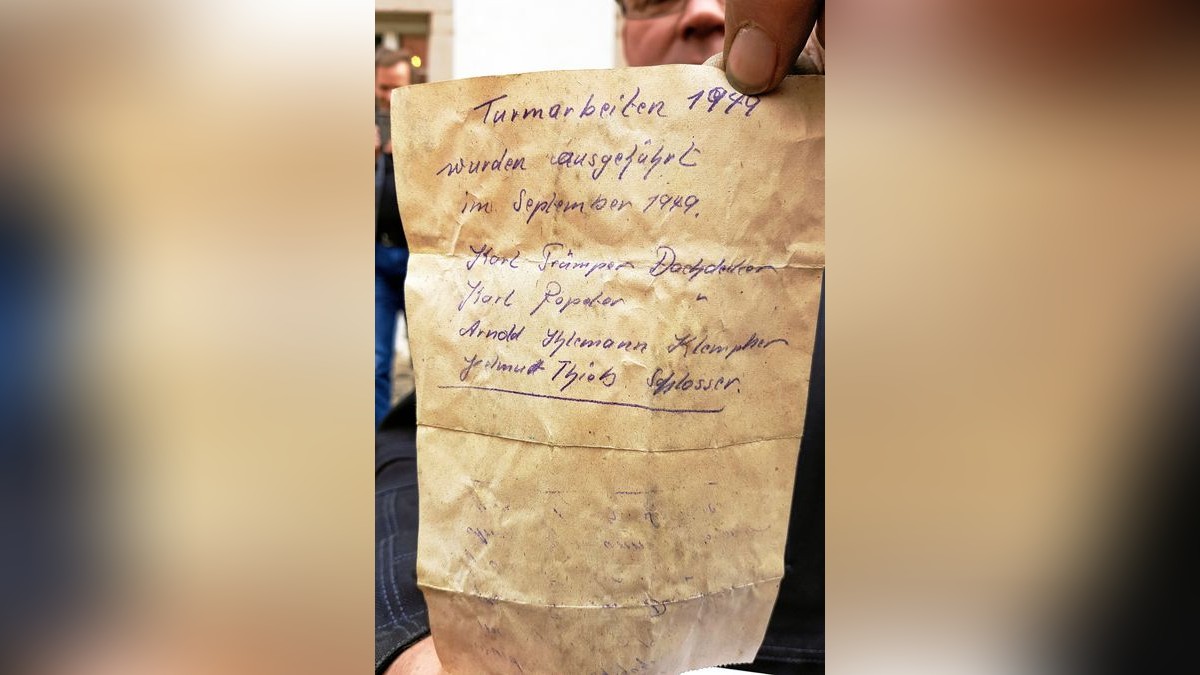 Turmarbeiten 1949
wurden ausgeführt
im September 1949.
Karl Trümper Dachdecker
Karl Röpeter "
Arnold Ihlemann Klempner
Helmut Thiels Schlosser.